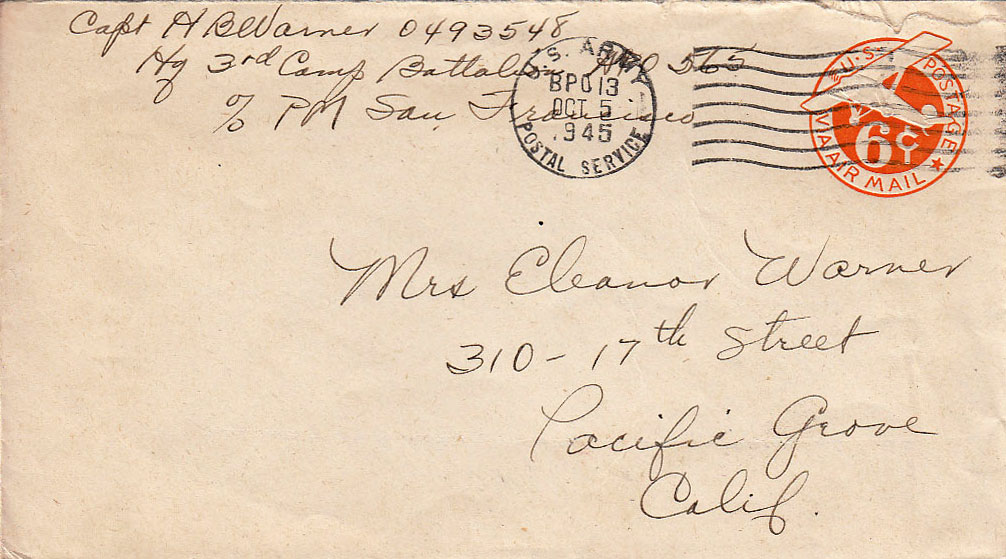 Capt H B Warner 0493548
Hq 3rd Camp Battalion APO 565
c/o PM San Francisco
U.S. ARMY
BPO 13
OCT 5
1945
POSTAL SERVICE
U.S. POSTAGE
6¢
VIA AIR MAIL
Mrs Eleanor Warner
310-17th Street
Pacific Grove
Calif.